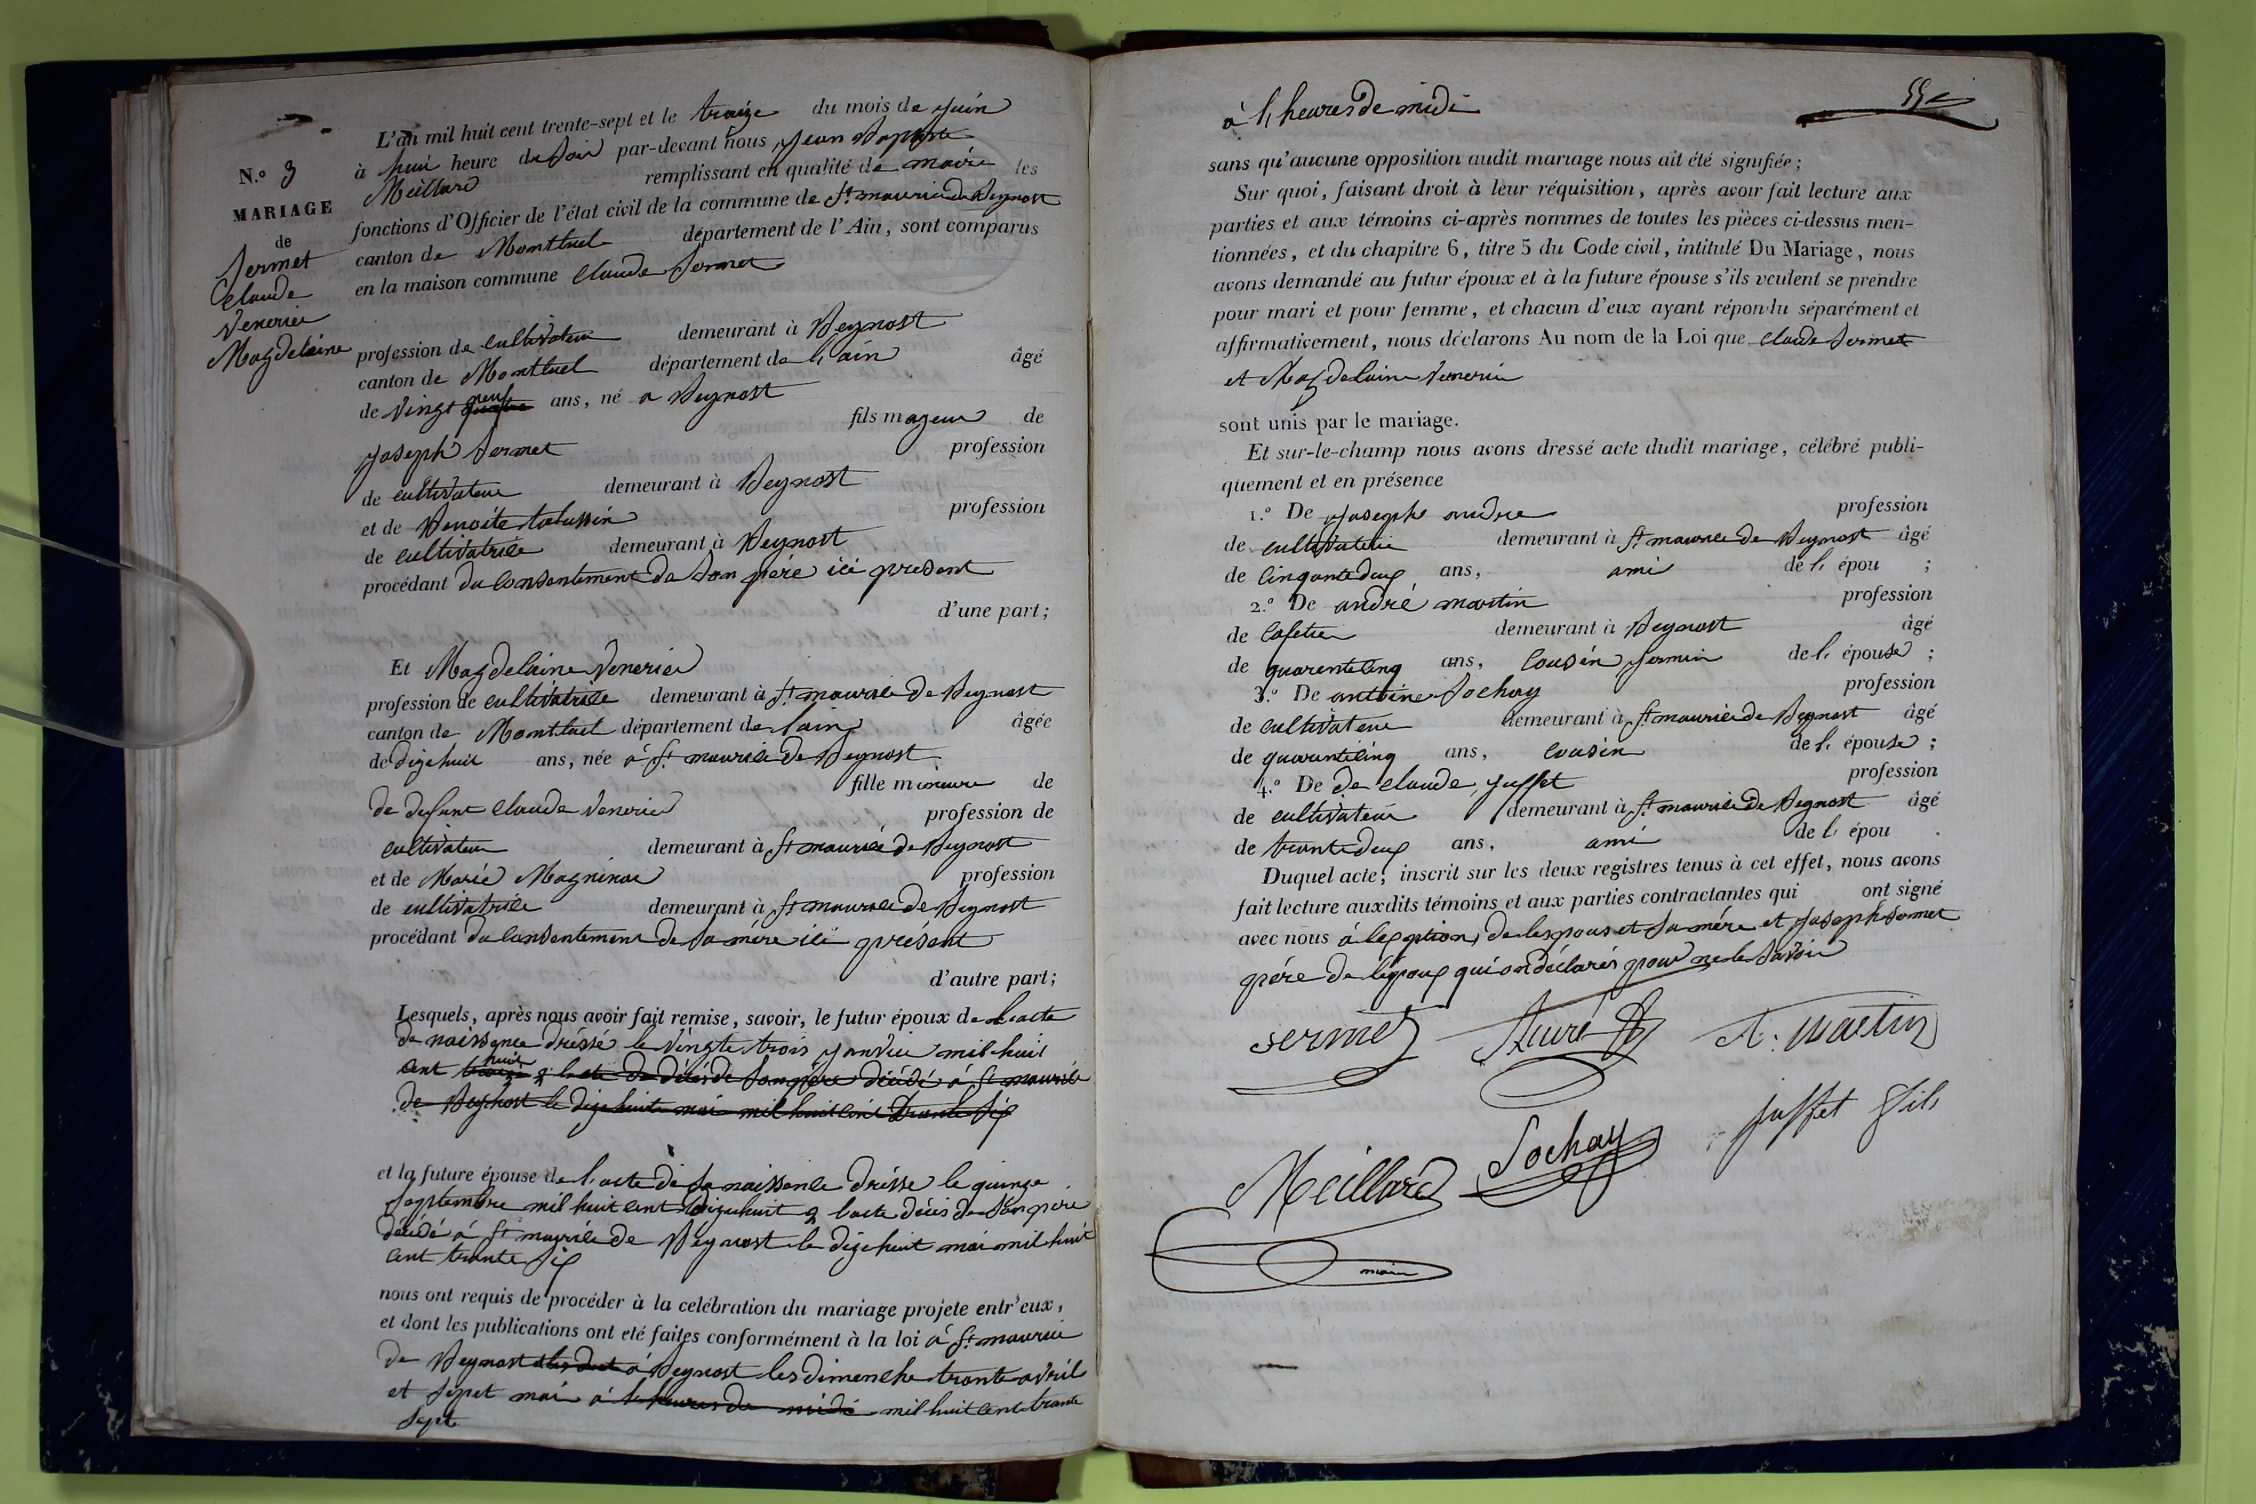 N.o 3
MARIAGE
de
Sermet
Claude
Venerier
Magdelaine
L'an mil huit cent trente-sept et le traize du mois de juin
à huit heure du soir par-devant nous Jean Baptiste
Meillard remplissant en qualité de maire les
fonctions d'Officier de l'état civil de la commune de St maurice de Beynost
canton de Montluel département de l'Ain, sont comparus
en la maison commune Claude Sermet
profession de cultivateur demeurant à Beynost
canton de Montluel département de l'ain âgé
de vingt neuf ans, né a Beynost
fils mageur de
Joseph Sermet profession
de cultivateur demeurant à Beynost
et de Benoite profession
de cultivatrice demeurant à Beynost
procédant du consentement de son père ici present
d'une part;
Et Magdelaine Venerier
profession de cultivatrice demeurant à St maurice de Beynost
canton de Montluel département de lain âgée
de dixehuit ans, née à St maurice de Beynost
fille mineure de
de defunt Claude Venerier profession de
cultivateur demeurant à St maurice de Beynost
et de Marie Magninar profession
de cultivatrice demeurant à St maurice de Beynost
procédant du consentement de sa mère ici présent
d'autre part;
Lesquels, après nous avoir fait remise, savoir, le futur époux de l'acte
de naissance dréssé le vingte trois janvier mil huit
cent huit & lacte de décés de son père décédé à St maurice
de Beynost le dixe huite mai mil huit cent trante six
et la future épouse de l'acte de sa naissance drésse le quinze
septembre mil huit cent dixehuit & lacte décés de son père
décédé à St maurice de Beynost le dixe huit mai mil huit
cent trante six
nous ont requis de procéder à la celébration du mariage projete entr'eux,
et dont les publications ont eté faites conformément à la loi à St maurice
de Beynost à Beynost les dimenche trante avril
et sepet mai à l heures de midi mil huit cent trante
sept
à l, heures de midi
55
sans qu'aucune opposition audit mariage nous ait été signifiée;
Sur quoi, faisant droit à leur réquisition, après avoir fait lecture aux
parties et aux témoins ci-après nommes de toutes les pièces ci-dessus men-
tionnées, et du chapitre 6, titre 5 du Code civil, intitulé Du Mariage, nous
avons demandé au futur époux et à la future épouse s'ils veulent se prendre
pour mari et pour femme, et chacun d'eux ayant répondu séparément et
affirmativement, nous déclarons Au nom de la Loi que Claude Sermet
et Magdelaine Venerier
sont unis par le mariage.
Et sur-le-champ nous avons dressé acte dudit mariage, célébré publi-
quement et en présence
1.o De Joseph andre profession
de cultivateur demeurant à St maurice de Beynost âgé
de cinquante deux ans, ami de l, épou ;
2.o De andré martin profession
de cafetier demeurant à Beynost âgé
de quarente cinq ans, cousin germin de l, épouse ;
3.o De antoine Sochay profession
de cultivateur demeurant à St maurice de Beynost âgé
de quarente cinq ans, cousin de l, épouse ;
4.o De de claude juffet profession
de cultivateur demeurant à St maurice de Beynost âgé
de trante deux ans, ami de l, épou .
Duquel acte, inscrit sur les deux registres tenus à cet effet, nous avons
fait lecture auxdits témoins et aux parties contractantes qui ont signé
avec nous à léxption, de lespous et sa mére et joseph sermet
père de lépoux qui on déclarés pour ne le savoir
sermet
A. martin
Meillard
Sochay
juffet fils
maire